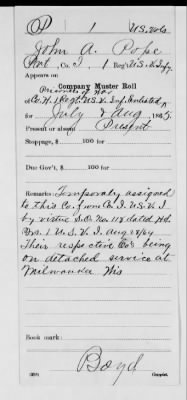 P 1 U.S. Vols.
John A. Pope
Pvt., Co. I, 1 Reg't U.S. V. Infy.
Appears on
Company Muster Roll
Prisoners of War
Co. H 1 Regt. U.S.V. Inf. Enlisted
for July & Aug, 1865.
Present or absent Present
Stoppage, $ 100 for
Due Gov't, $ 100 for
Remarks: Temporaly assigned
to this Co. from Co. I. U.S.V.I
by virtue S.O. No. 118 dated Hd.
Qrs. 1 U.S.V.I. Aug 28/64
Their respective Co's being
on detached service at
Milwaukee Wis
Book mark:
Boyd
Copyist.